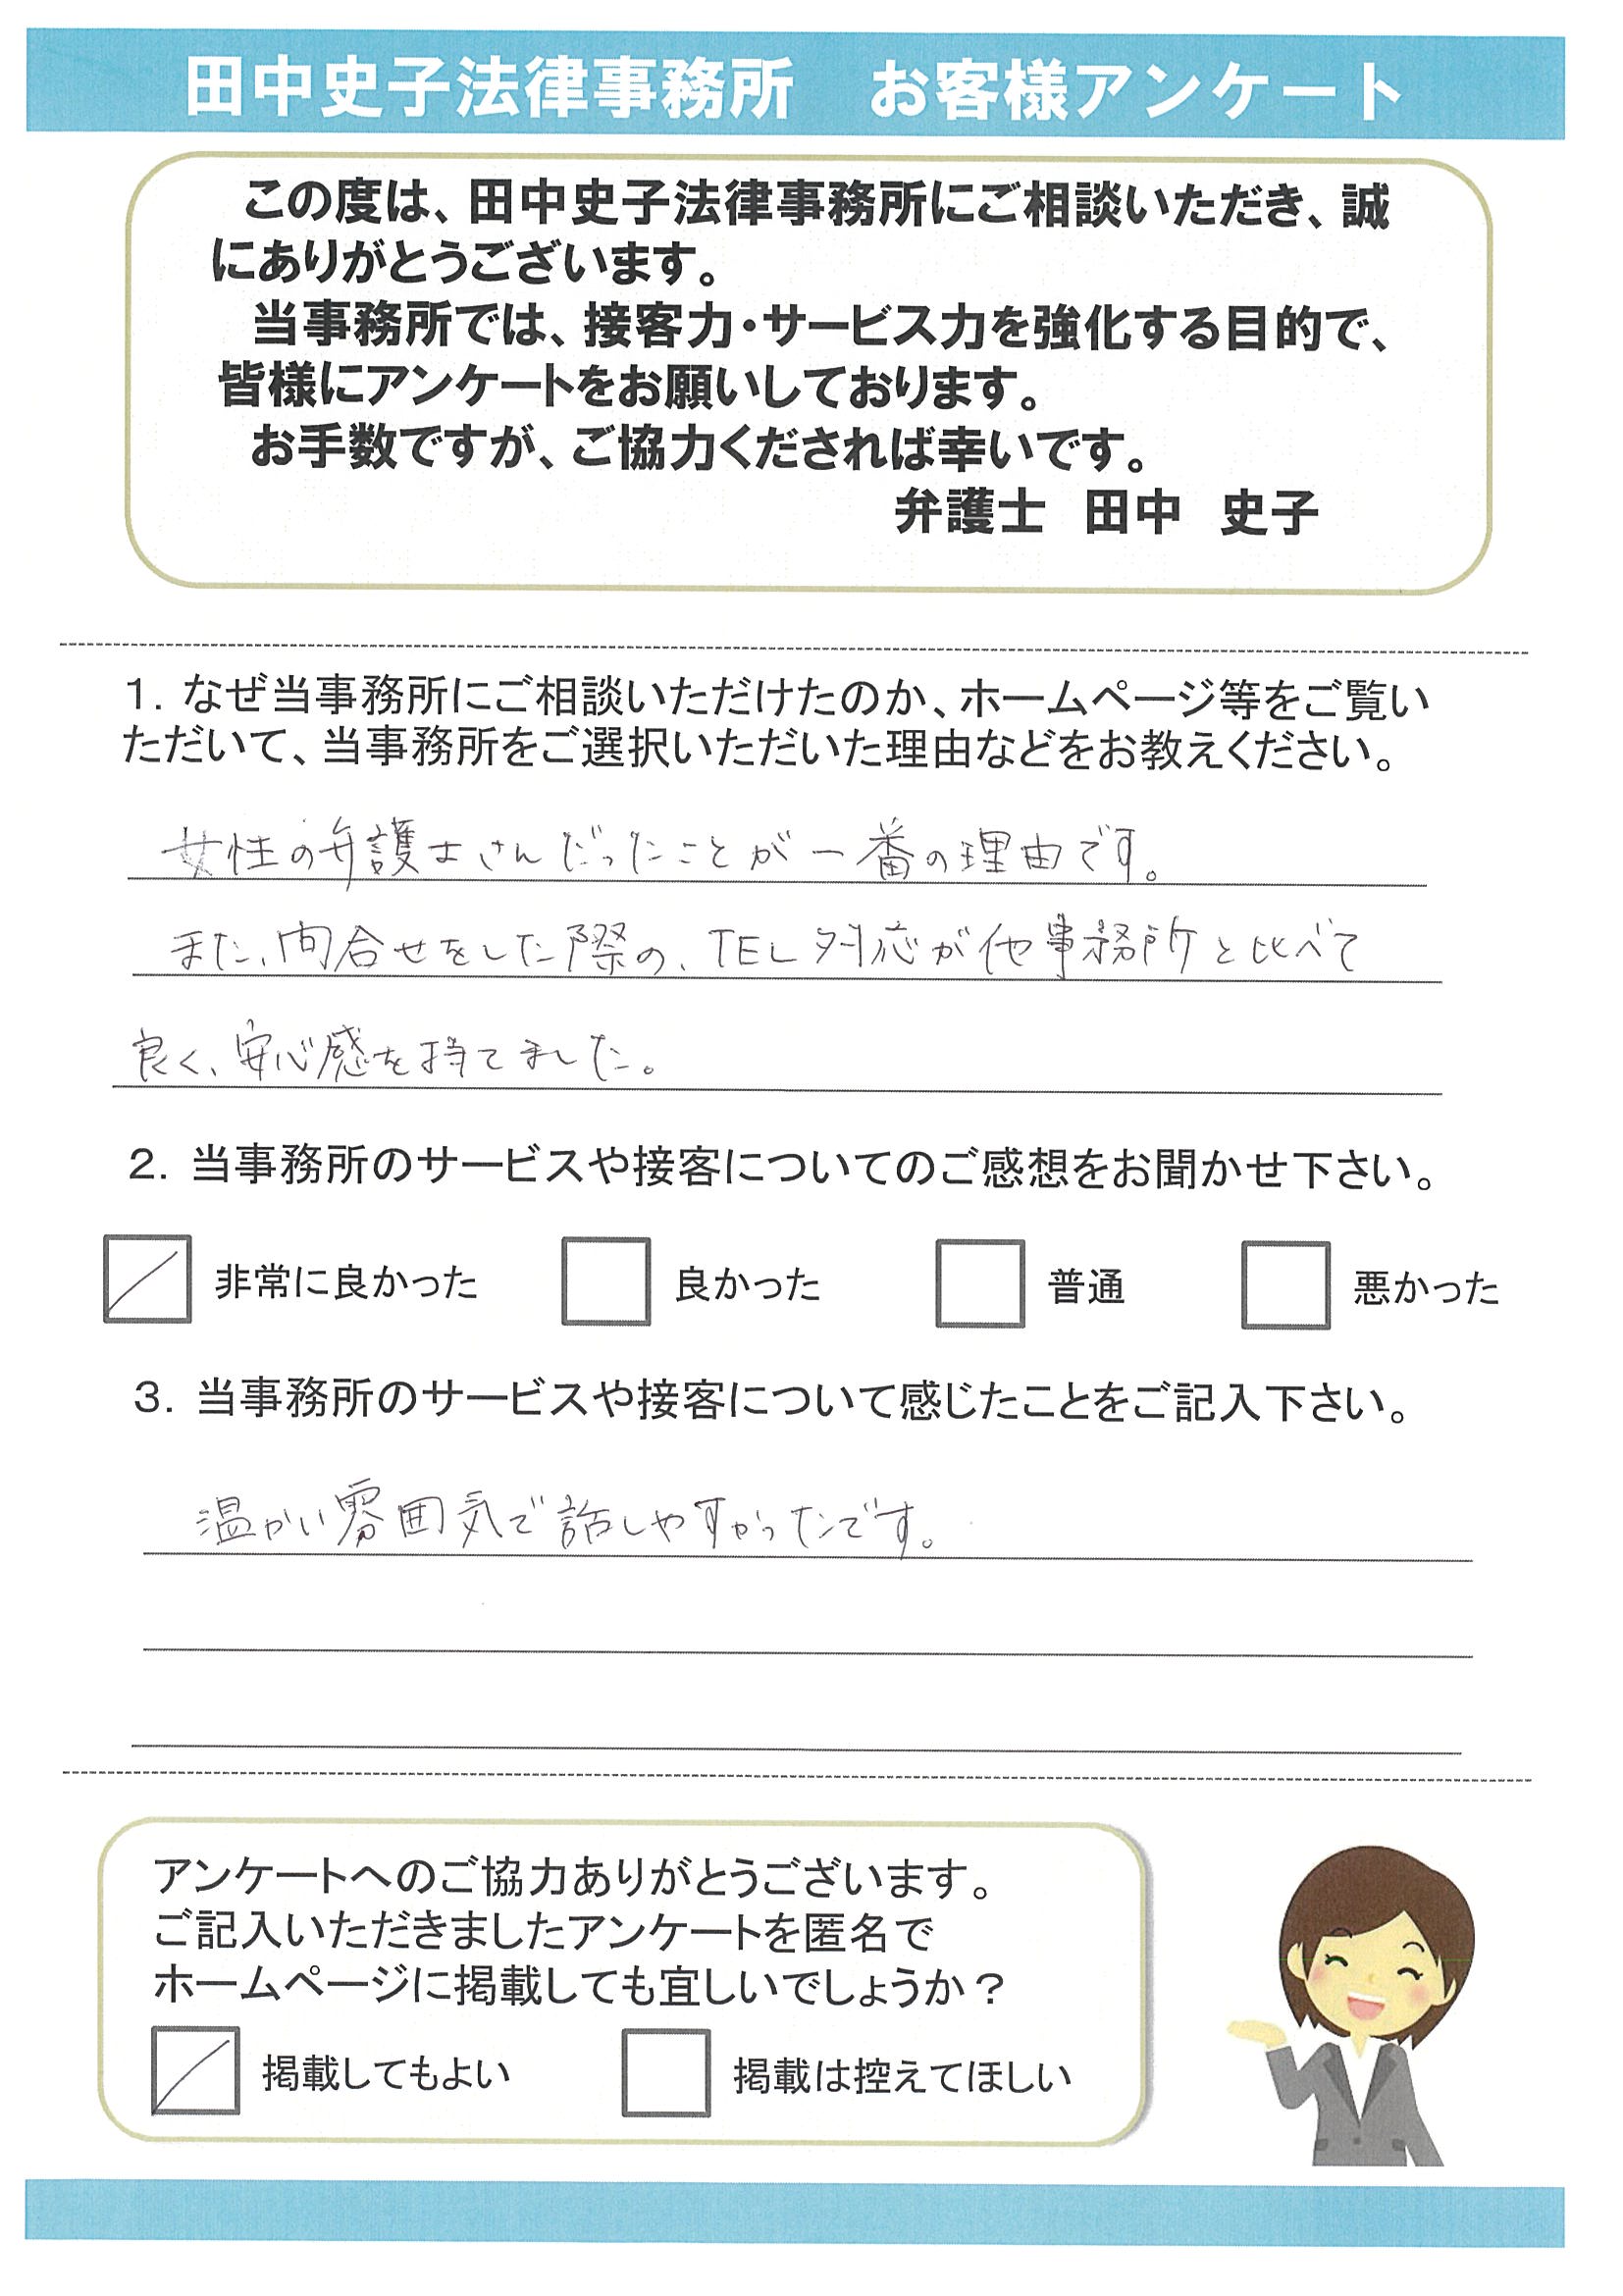 田中史子法律事務所　お客様アンケート
この度は、田中史子法律事務所にご相談いただき、誠
にありがとうございます。
当事務所では、接客力・サービス力を強化する目的で、
皆様にアンケートをお願いしております。
お手数ですが、ご協力くだされば幸いです。
弁護士　田中　史子
1. なぜ当事務所にご相談いただけたのか、ホームページ等をご覧い
ただいて、当事務所をご選択いただいた理由などをお教えください。
女性の弁護士さんだったことが一番の理由です。
また、問合せをした際の、TEL対応が他事務所と比べて
良く、安心感を持てました。
2. 当事務所のサービスや接客についてのご感想をお聞かせ下さい。
非常に良かった　良かった　普通　悪かった
3. 当事務所のサービスや接客について感じたことをご記入下さい。
温かい雰囲気で話しやすかったです。
アンケートへのご協力ありがとうございます。
ご記入いただきましたアンケートを匿名で
ホームページに掲載しても宜しいでしょうか？
掲載してもよい　掲載は控えてほしい